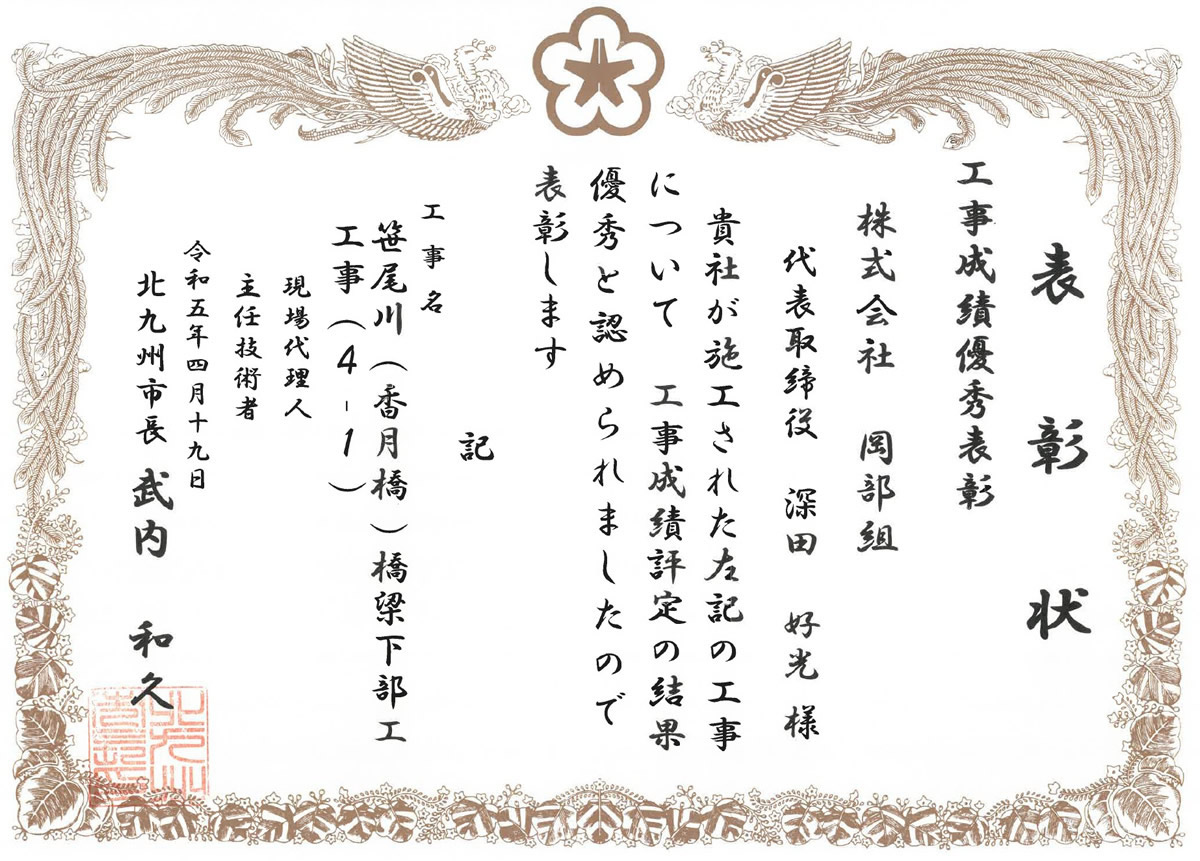 表彰状
工事成績優秀表彰
株式会社 岡部組
代表取締役 深田 好光 様
貴社が施工された左記の工事
について 工事成績評定の結果
優秀と認められましたので
表彰します
記
工事名
笹尾川(香月橋)橋梁下部工
工事(4-1)
現場代理人
主任技術者
令和五年四月十九日
北九州市長 武内 和久